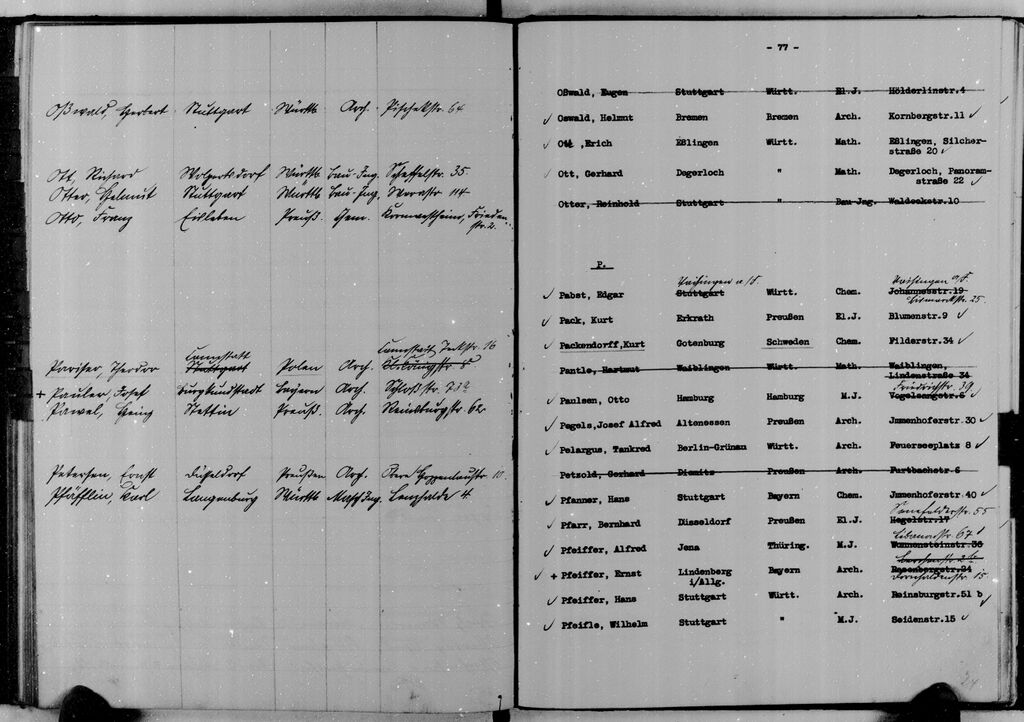 Oßwald, Herbert Stuttgart Württb. Arch. Pischekstr. 64
Ott, Richard Wolpertsdorf Württb. Bau-Ing. Scheffelstr. 35
Otter, Helmut Stuttgart Württb. Bau-Ing. 114
Otto, Franz Eisleben Preuß. Kornwestheim, Frieden-
str. 2.
Cannstatt Cannstatt, Teckstr. 16
Pariser, Theodor Stuttgart Polen Arch.
+ Pauler, Josef Burgkundstadt Bayern Arch. Schloßstr.
Pawel, Heinz Stettin Preuß. Arch. Reinsburgstr. 62
Petersen, Ernst Düsseldorf Preußen Arch. Obere 10.
Pfäfflin, Karl Langenburg Württb. Masch.Ing. Lenzhalde 4
- 77 -
Oßwald, Eugen Stuttgart Württ. El.J. Hölderlinstr.4
✓ Oswald, Helmut Bremen Bremen Arch. Kornbergstr.11 ✓
✓ Ott, Erich Eßlingen Württ. Math. Eßlingen, Silcher-
straße 20 ✓
✓ Ott, Gerhard Degerloch " Math. Degerloch, Panoram-
straße 22 ✓
Otter, Reinhold Stuttgart " Bau-Jng. Waldeckstr.10
P.
Vaihingen a/F. Vaihingen a/F.
✓ Pabst, Edgar Stuttgart Württ. Chem. Johannesstr.19
Bismarckstr. 25.
✓ Pack, Kurt Erkrath Preußen El.J. Blumenstr.9 ✓
✓ Packendorff,Kurt Gotenburg Schweden Chem. Filderstr.34 ✓
Pantle, Hartmut Waiblingen Württ. Math. Waiblingen,
Lindenstraße 34
Friedrichstr. 39
✓ Paulsen, Otto Hamburg Hamburg M.J. Vogelsangstr.6
✓ Pegels,Josef Alfred Altenessen Preußen Arch. Jmmenhoferstr.30 ✓
✓ Pelargus, Tankred Berlin-Grünau Württ. Arch. Feuerseeplatz 8 ✓
Petzold, Gerhard Diemitz Preußen Arch. Furtbachstr.6
✓ Pfanner, Hans Stuttgart Bayern Chem. Jmmenhoferstr.40 ✓
Senefelderstr. 55
✓ Pfarr, Bernhard Düsseldorf Preußen El.J. Hegelstr.17
67
✓ Pfeiffer, Alfred Jena Thüring. M.J. Wonnensteinstr.36
✓ + Pfeiffer, Ernst Lindenberg Bayern Arch. Rosenbergstr.24
i/Allg. Dornhaldenstr. 15
✓ Pfeiffer, Hans Stuttgart Württ. Arch. Reinsburgstr.51 b ✓
✓ Pfeifle, Wilhelm Stuttgart " M.J. Seidenstr.15 ✓